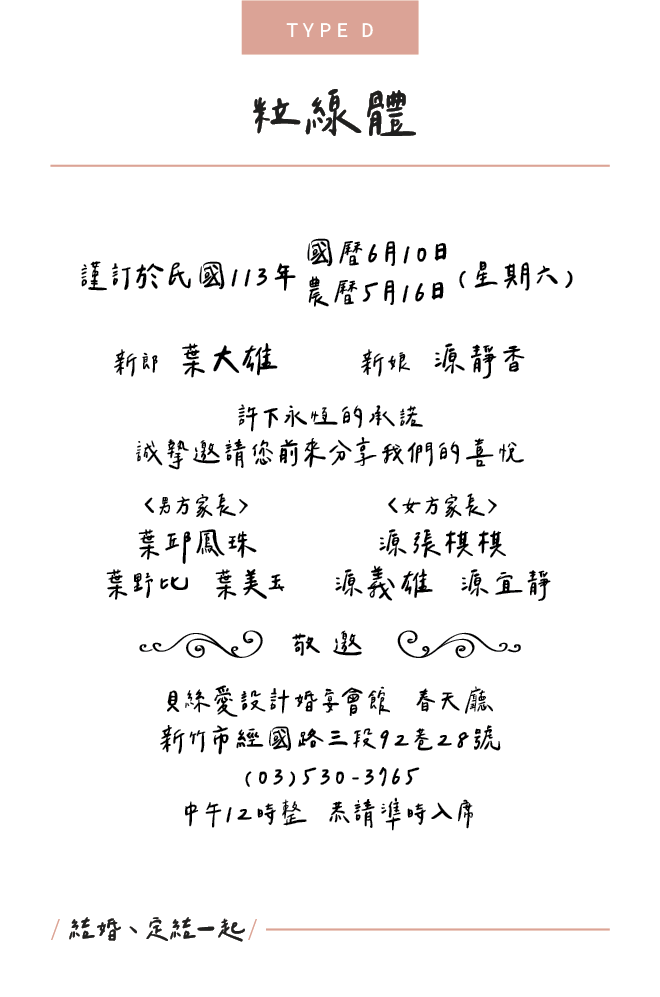 TYPE D
粒線體
謹訂於民國113年 國曆6月10日 農曆5月16日 (星期六)
新郎 葉大雄 新娘 源靜香
許下永恆的承諾
誠摯邀請您前來分享我們的喜悅
<男方家長> <女方家長>
葉邱鳳珠 源張棋棋
葉野比 葉美玉 源義雄 源宜靜
敬邀
貝絲愛設計婚宴會館 春天廳
新竹市經國路三段92巷28號
(03)530-3765
中午12時整 恭請準時入席
/ 結婚、定結一起 /